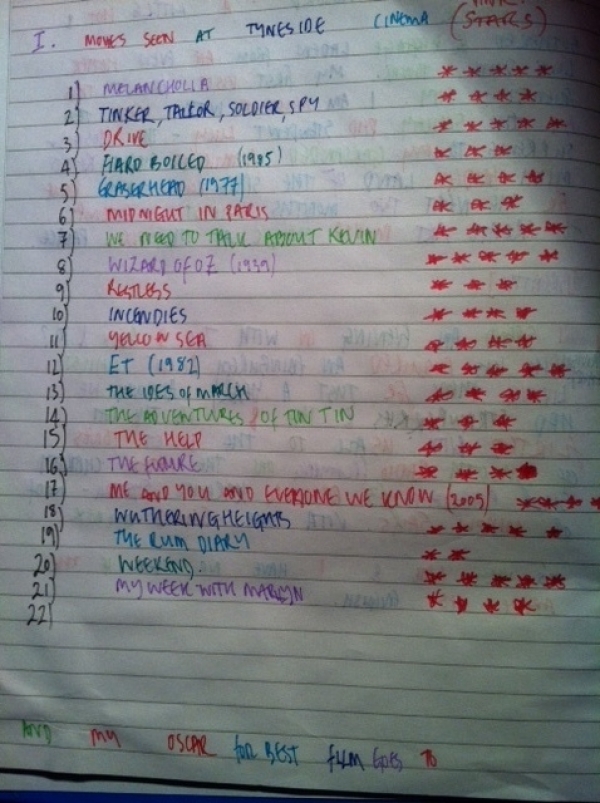 I. MOVIES SEEN AT TYNESIDE CINEMA (STARS)
1) MELANCHOLIA * * * * *
2) TINKER, TAILOR, SOLDIER, SPY * * * *
3) DRIVE * * * * *
4) HARD BOILED (1985) * * *
5) ERASERHEAD (1977) * * * *
6) MIDNIGHT IN PARIS * * *
7) WE NEED TO TALK ABOUT KEVIN * * * * *
8) WIZARD OF OZ (1939) * * * * *
9) RESTLESS * * *
10) INCENDIES * * * *
11) YELLOW SEA * * * *
12) ET (1982) * * * * *
13) THE IDES OF MARCH * * * *
14) THE ADVENTURES OF TIN TIN * * *
15) THE HELP * * *
16) THE FUTURE * * * *
17) ME AND YOU AND EVERYONE WE KNOW (2005) * * * *
18) WUTHERING HEIGHTS * * * * *
19) THE RUM DIARY * *
20) WEEKEND * * * * *
21) MY WEEK WITH MARILYN * * * *
22)
AND MY OSCAR FOR BEST FILM GOES TO